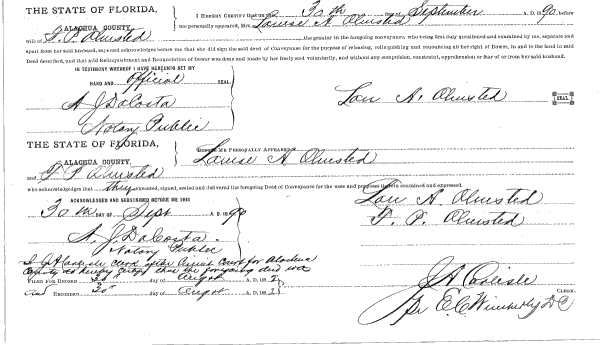 THE STATE OF FLORIDA,
ALACHUA COUNTY.
I HEREBY CERTIFY that on 30th day of September A. D. 1890, before
me personally appeared, Mrs. Louise A Olmsted
wife of F. P. Olmsted the grantor in the foregoing conveyance, who being first duly examined by me, separate and
apart from her said husband, says and acknowledges herein that she did sign the said deed of Conveyance for the purpose of releasing, relinquishing and renouncing all her right of Dower, in and to the land in said
Deed described, and that said Relinquishment and Renunciation of Dower was done and made by her freely and voluntarily, and without any compulsion, constraint, apprehension or fear of or from her said husband.
IN TESTIMONY WHEREOF I HAVE HEREUNTO SET BY
HAND AND Official SEAL
A J DaCosta
Notary Public
Lou A. Olmsted
SEAL.
THE STATE OF FLORIDA,
ALACHUA COUNTY.
BEFORE ME PERSONALLY APPEARED
Louise A Olmsted
and F. P. Olmsted
who acknowledges that they executed, signed, sealed and delivered the foregoing Deed of Conveyance for the uses and purposes therein contained and expressed.
ACKNOWLEDGED AND SUBSCRIBED BEFORE ME THIS
30th DAY OF Sept A. D. 1890
A. J. DaCosta.
Notary Public
Lou A. Olmsted
F. P. Olmsted
I J A Carlisle Clerk of the Circuit Court for Alachua
County do hereby certify that the foregoing deed was
FILED FOR RECORD day of August A. D. 189
and RECORDED day of August A. D. 189
J A Carlisle
CLERK.
pr E C Wimberly D C